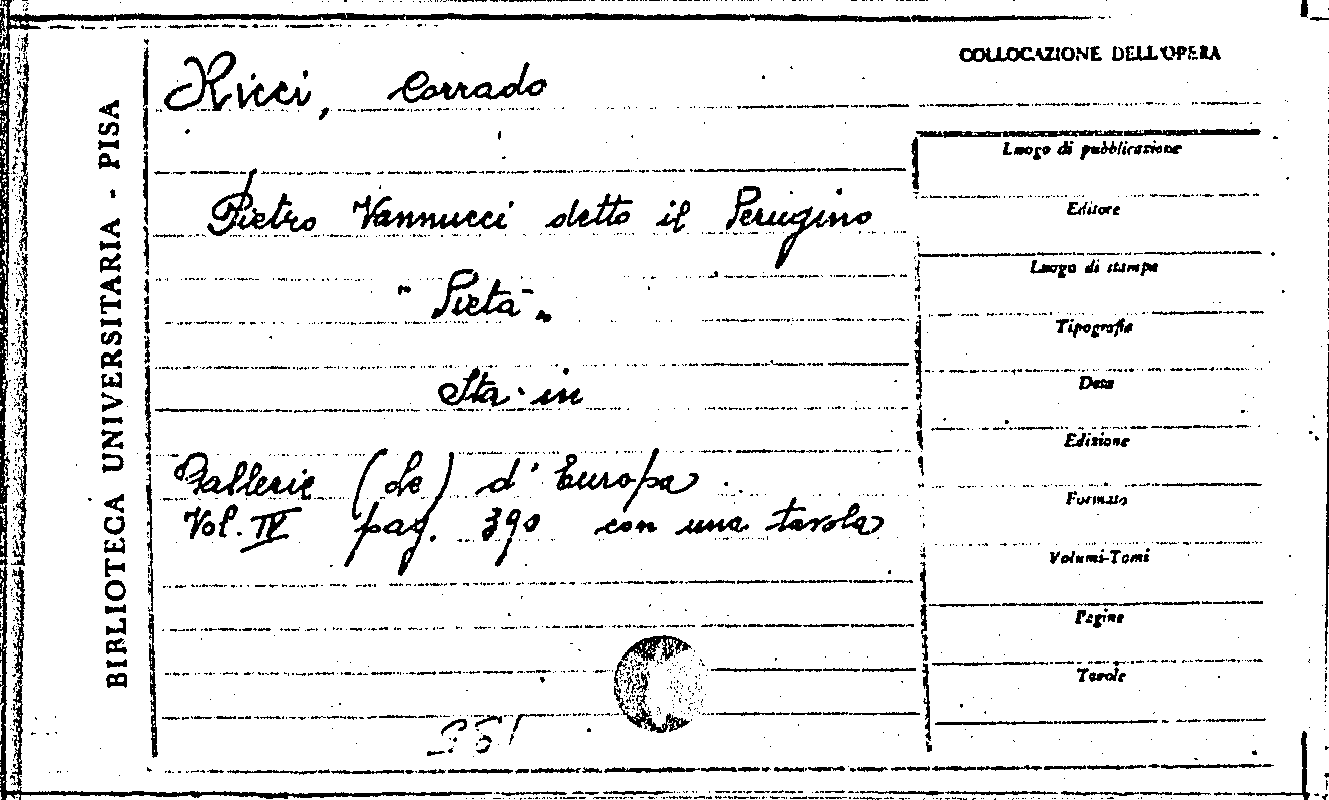 BIBLIOTECA UNIVERSITARIA - PISA
Ricci, Corrado
Pietro Vannucci detto il Perugino
" Pietà "
Sta in
Gallerie (Le) d'Europa
Vol. IV pag. 390 con una tavola
COLLOCAZIONE DELL'OPERA
Luogo di pubblicazione
Editore
Luogo di stampa
Tipografia
Data
Edizione
Formato
Volumi-Tomi
Pagine
Tavole